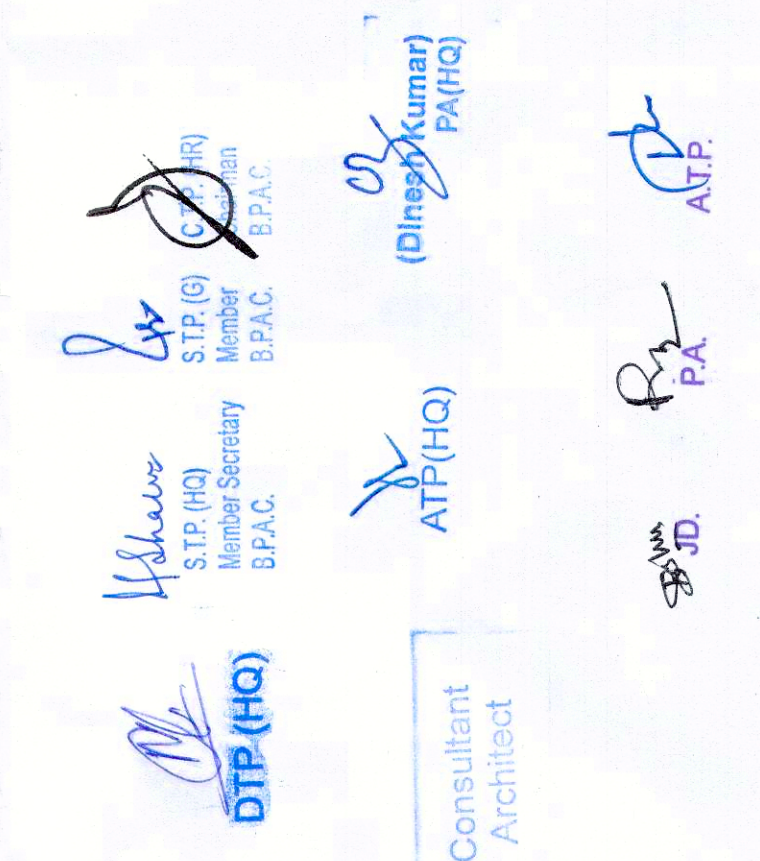 DTP (HQ)
S.T.P. (HQ)
Member Secretary
B.P.A.C.
S.T.P. (G)
Member
B.P.A.C.
C.T.P. (HR)
Chairman
B.P.A.C.
Consultant
Architect
ATP(HQ)
(Dinesh Kumar)
PA(HQ)
JD.
P.A.
A.T.P.